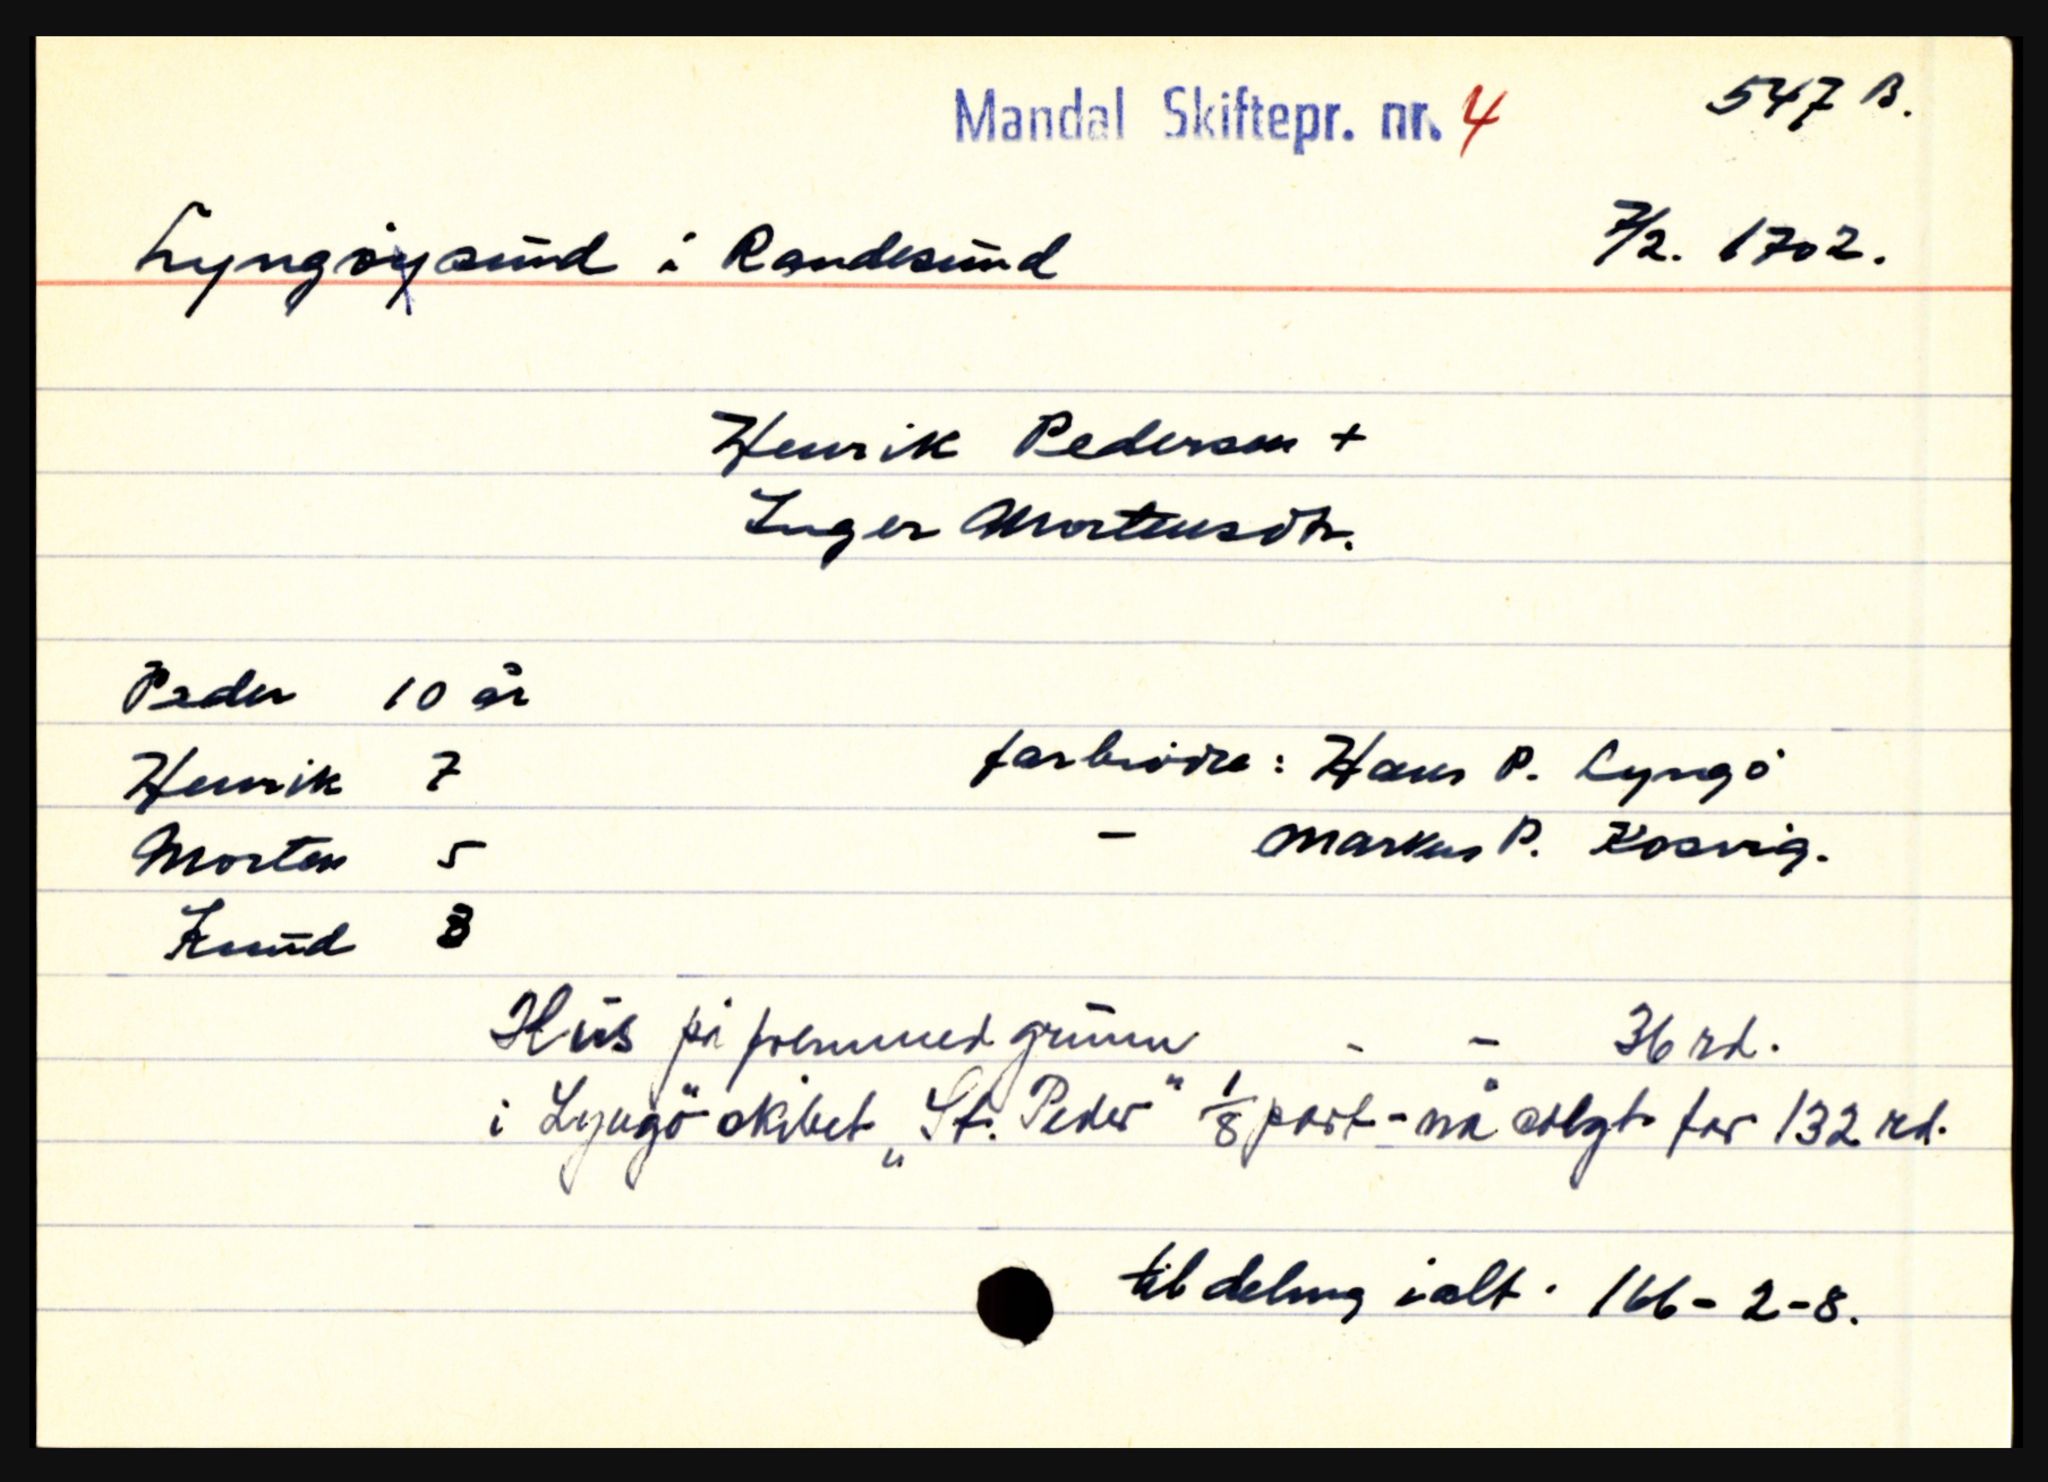 Mandal Skiftepr. nr. 4 547 B.
Lyngöysund i Randesund 7/2. 1702.
Henrik Pedersen +
Inger Mortensdtr.
Peder 10 år
Henrik 7 farbrödre: Hans P. Lyngö
Morten 5 - Markus P. Kosvig.
Knud 3
Hus på fremmed grunn - - 36 rd.
i Lyngö skibet „St. Peder" 1/8 part - nå solgt for 132 rd.
til deling ialt. 166-2-8.